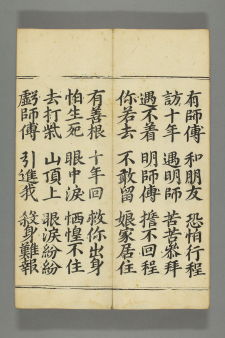 有師傅　和朋友　恐怕行程
訪十年　遇明師　苦苦叅拜
遇不着　明師傅　擔不回程
你若去　不敢留　娘家居住
有善根　十年回　救你出身
怕生死　眼中淚　恓惶不住
去打柴　山頂上　眼淚紛紛
虧師傅　引進我　殺身難報